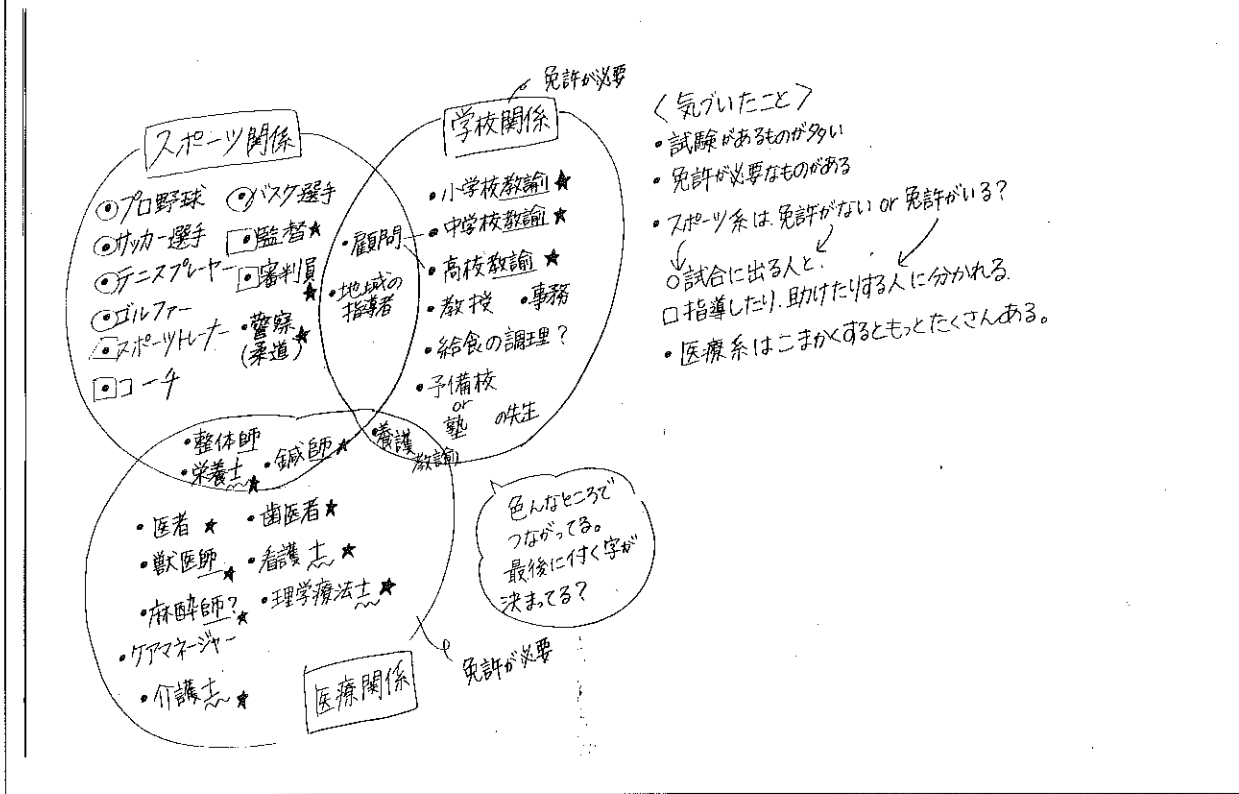 免許が必要
スポーツ関係
・プロ野球 ・バスケ選手
・サッカー選手 ・監督★
・テニスプレーヤー ・審判員★
・ゴルファー
・スポーツトレーナー ・警察★
(柔道)
・コーチ
・顧問
・地域の
指導者
学校関係
・小学校教諭★
・中学校教諭★
・高校教諭★
・教授 ・事務
・給食の調理?
・予備校
or
塾 の先生
・養護
教諭
・整体師
・栄養士★ ・鍼師★
・医者★ ・歯医者★
・獣医師★ ・看護士★
・麻酔師?★ ・理学療法士★
・ケアマネージャー
・介護士★
医療関係
免許が必要
色んなところで
つながってる。
最後に付く字が
決まってる?
<気づいたこと>
・試験があるものが多い
・免許が必要なものがある
・スポーツ系は免許がない or 免許がいる?
○試合に出る人と、
□指導したり、助けたりする人に分かれる。
・医療系はこまかくするともっとたくさんある。